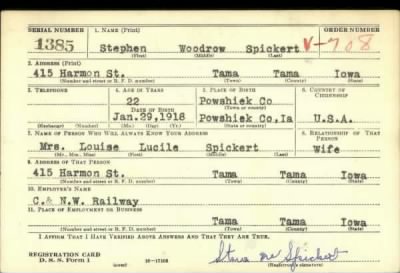 SERIAL NUMBER 1. NAME (Print) ORDER NUMBER
1385 Stephen Woodrow Spickert V-708
(First) (Middle) (Last)
2. ADDRESS (Print)
415 Harmon St. Tama Tama Iowa
(Number and street or R. F. D. number) (Town) (County) (State)
3. TELEPHONE 4. AGE IN YEARS 5. PLACE OF BIRTH 6. COUNTRY OF CITIZENSHIP
22 Powshiek Co
DATE OF BIRTH (Town or county)
Jan.29,1918 Powshiek Co,Ia U.S.A.
(Exchange) (Number) (Mo.) (Day) (Yr.) (State or country)
7. NAME OF PERSON WHO WILL ALWAYS KNOW YOUR ADDRESS 8. RELATIONSHIP OF THAT PERSON
Mrs. Louise Lucile Spickert Wife
(Mr., Mrs., Miss) (First) (Middle) (Last)
9. ADDRESS OF THAT PERSON
415 Harmon St. Tama Tama Iowa
(Number and street or R. F. D. number) (Town) (County) (State)
10. EMPLOYER'S NAME
C.& N.W. Railway
11. PLACE OF EMPLOYMENT OR BUSINESS
Tama Tama Iowa
(Number and street or R. F. D. number) (Town) (County) (State)
I AFFIRM THAT I HAVE VERIFIED ABOVE ANSWERS AND THAT THEY ARE TRUE.
REGISTRATION CARD
D. S. S. Form 1 (over) 16-17105 (Registrant's signature)